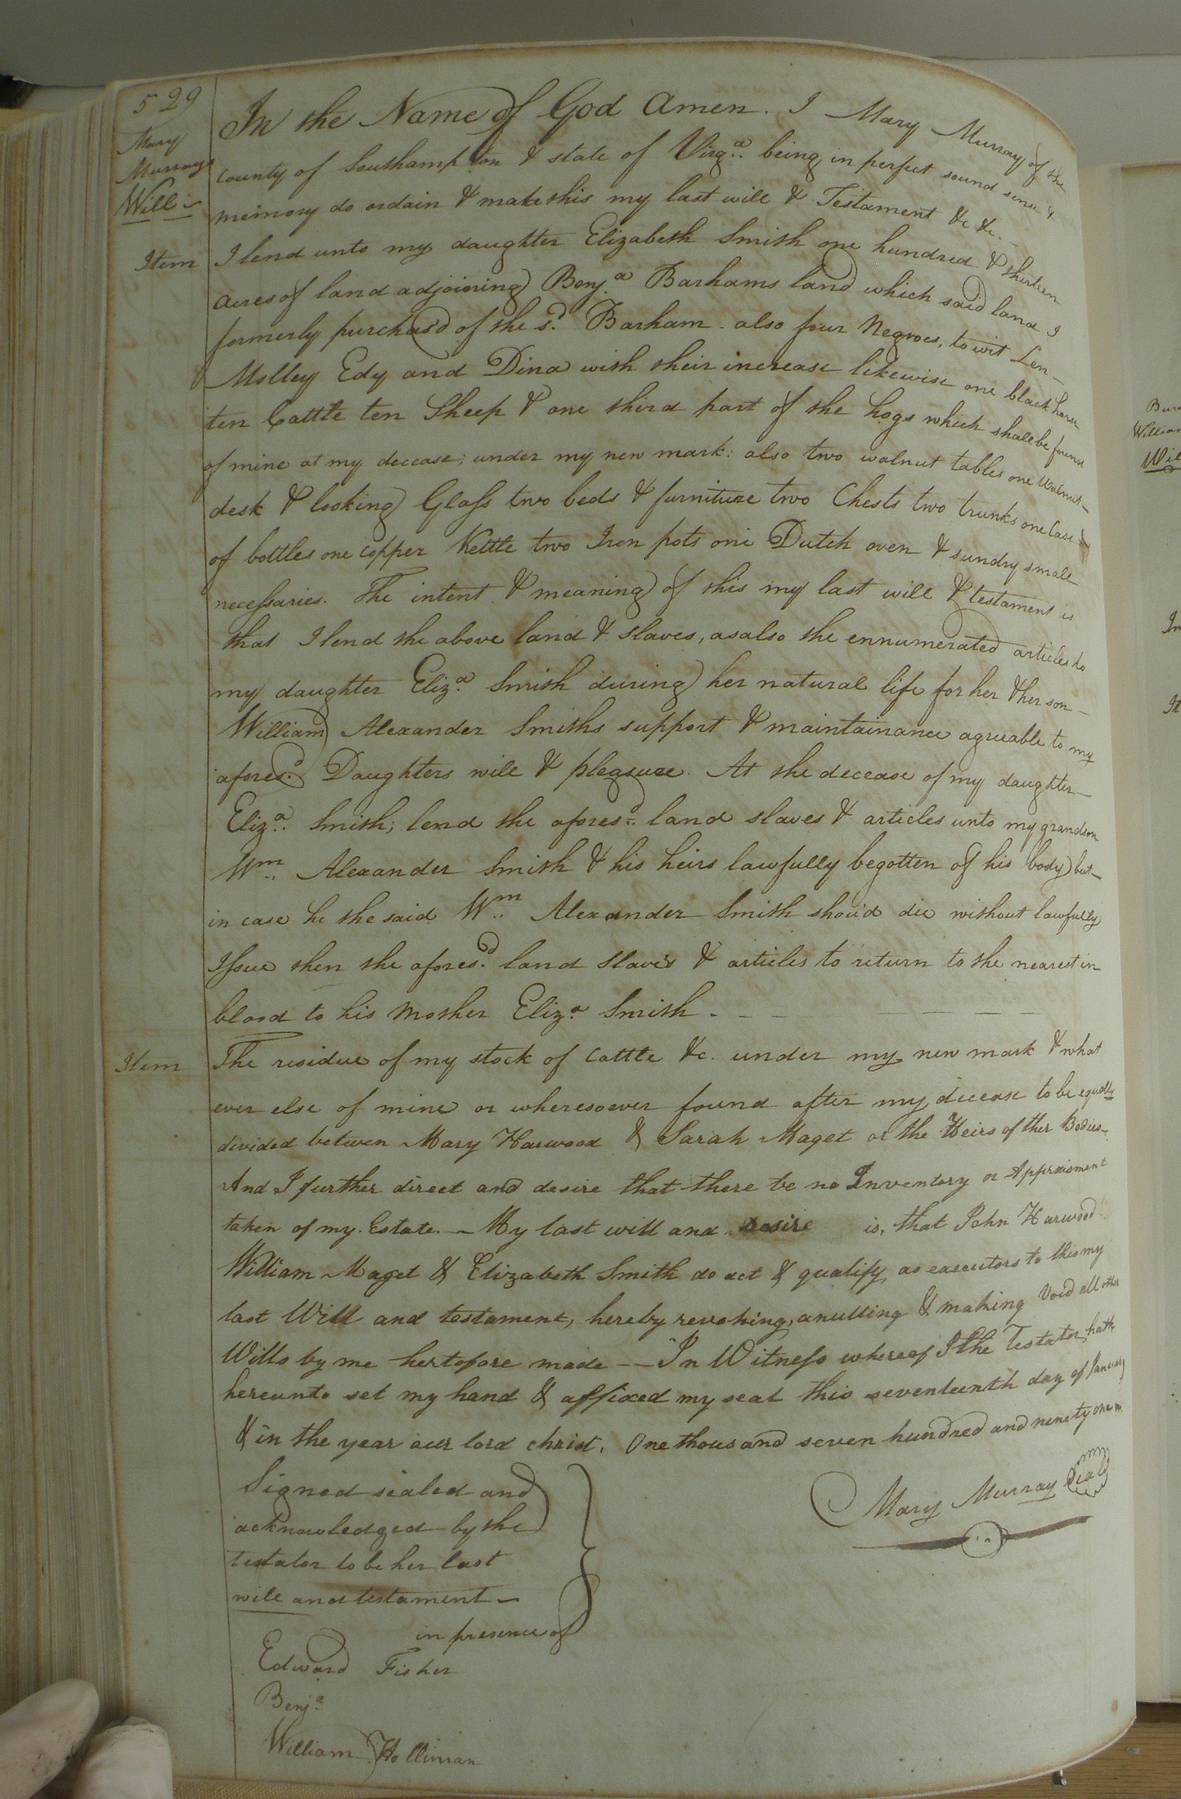 529
Mary
Murrays
Will
In the Name of God Amen. I Mary Murray of the
County of Southampton & state of Virga. being in perfect sound sense &
memory do ordain & make this my last will & Testament &c &c.
Item I lend unto my daughter Elizabeth Smith one hundred & thirteen
acres of land adjoining Benja. Barhams land which said land I
formerly purchas'd of the sd. Barham. also four Negroes, to wit Len
Molley Edy and Dina with their increase likewise one black horse
ten Cattle ten Sheep & one third part of the hogs which shall be found
of mine at my decease; under my new mark: also two walnut tables one Walnut
desk & looking Glass two beds & furniture two Chests two trunks one Case
of bottles one copper Kettle two Iron pots one Dutch oven & sundry small
necessaries. The intent & meaning of this my last will & testament is
that I lend the above land & slaves, as also the ennumerated articles to
my daughter Eliza. Smith during her natural life for her & her son
William Alexander Smiths support & maintainance agreeable to my
aforesd. Daughters will & pleasure. At the decease of my daughter
Eliza. Smith; lend the aforesd. land slaves & articles unto my grandson
Wm. Alexander Smith & his heirs lawfully begotten of his body but
in case he the said Wm. Alexander Smith shou'd die without lawfully
Issue then the aforesd. land slaves & articles to return to the nearest in
blood to his Mother Eliza. Smith.
Item The residue of my stock of Cattle &c. under my new mark & what
ever else of mine or wheresoever found after my decease to be equally
divided between Mary Harwood & Sarah Maget or the Heirs of ther Bodies.
And I further direct and desire that there be no Inventory or Appraisment
taken of my Estate. - My last will and desire is, that John Harwood
William Maget & Elizabeth Smith do act & qualify as executors to this my
last Will and testament, hereby revoking, anulling & making Void all other
Wills by me hertofore made -- In Witness whereof I the Testator hath
hereunto set my hand & affixed my seal this seventeenth day of January
& in the year our lord christ, One thousand seven hundred and ninety one
Mary Murray Seal
Signed sealed and
acknowledged by the
testator to be her last
will and testament -
in presence of
Edward Fisher
Benja.
William Holliman